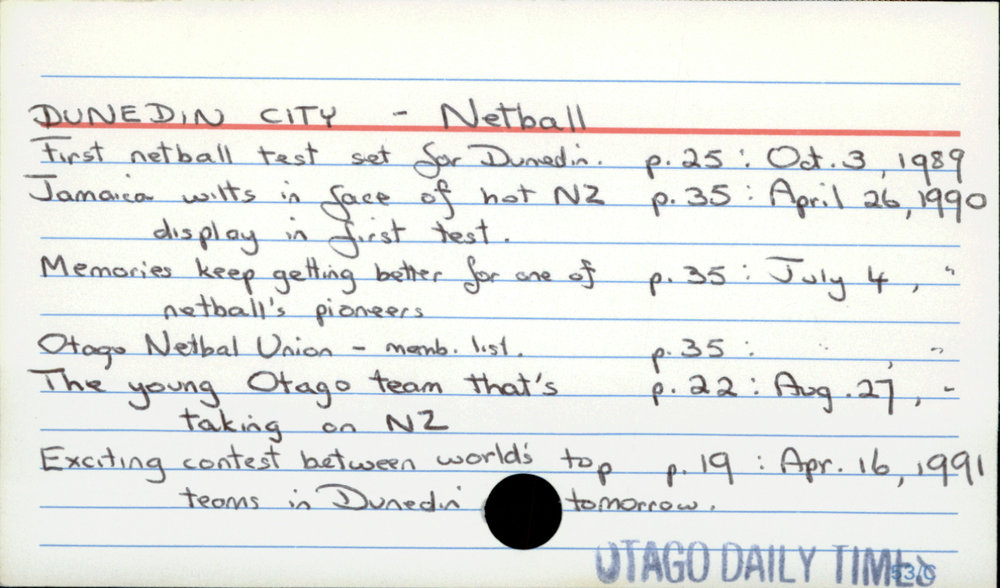 DUNEDIN CITY - Netball
First netball test set for Dunedin. p. 25 : Oct. 3, 1989
Jamaica wilts in face of hot NZ p. 35 : April 26, 1990
display in first test.
Memories keep getting better for one of p. 35 : July 4, "
netball's pioneers
Otago Netbal Union - memb. list. p. 35 : " , "
The young Otago team that's p. 22 : Aug. 27, -
taking on NZ
Exciting contest between world's top p. 19 : Apr. 16, 1991
teams in Dunedin tomorrow.
OTAGO DAILY TIMES
53/5